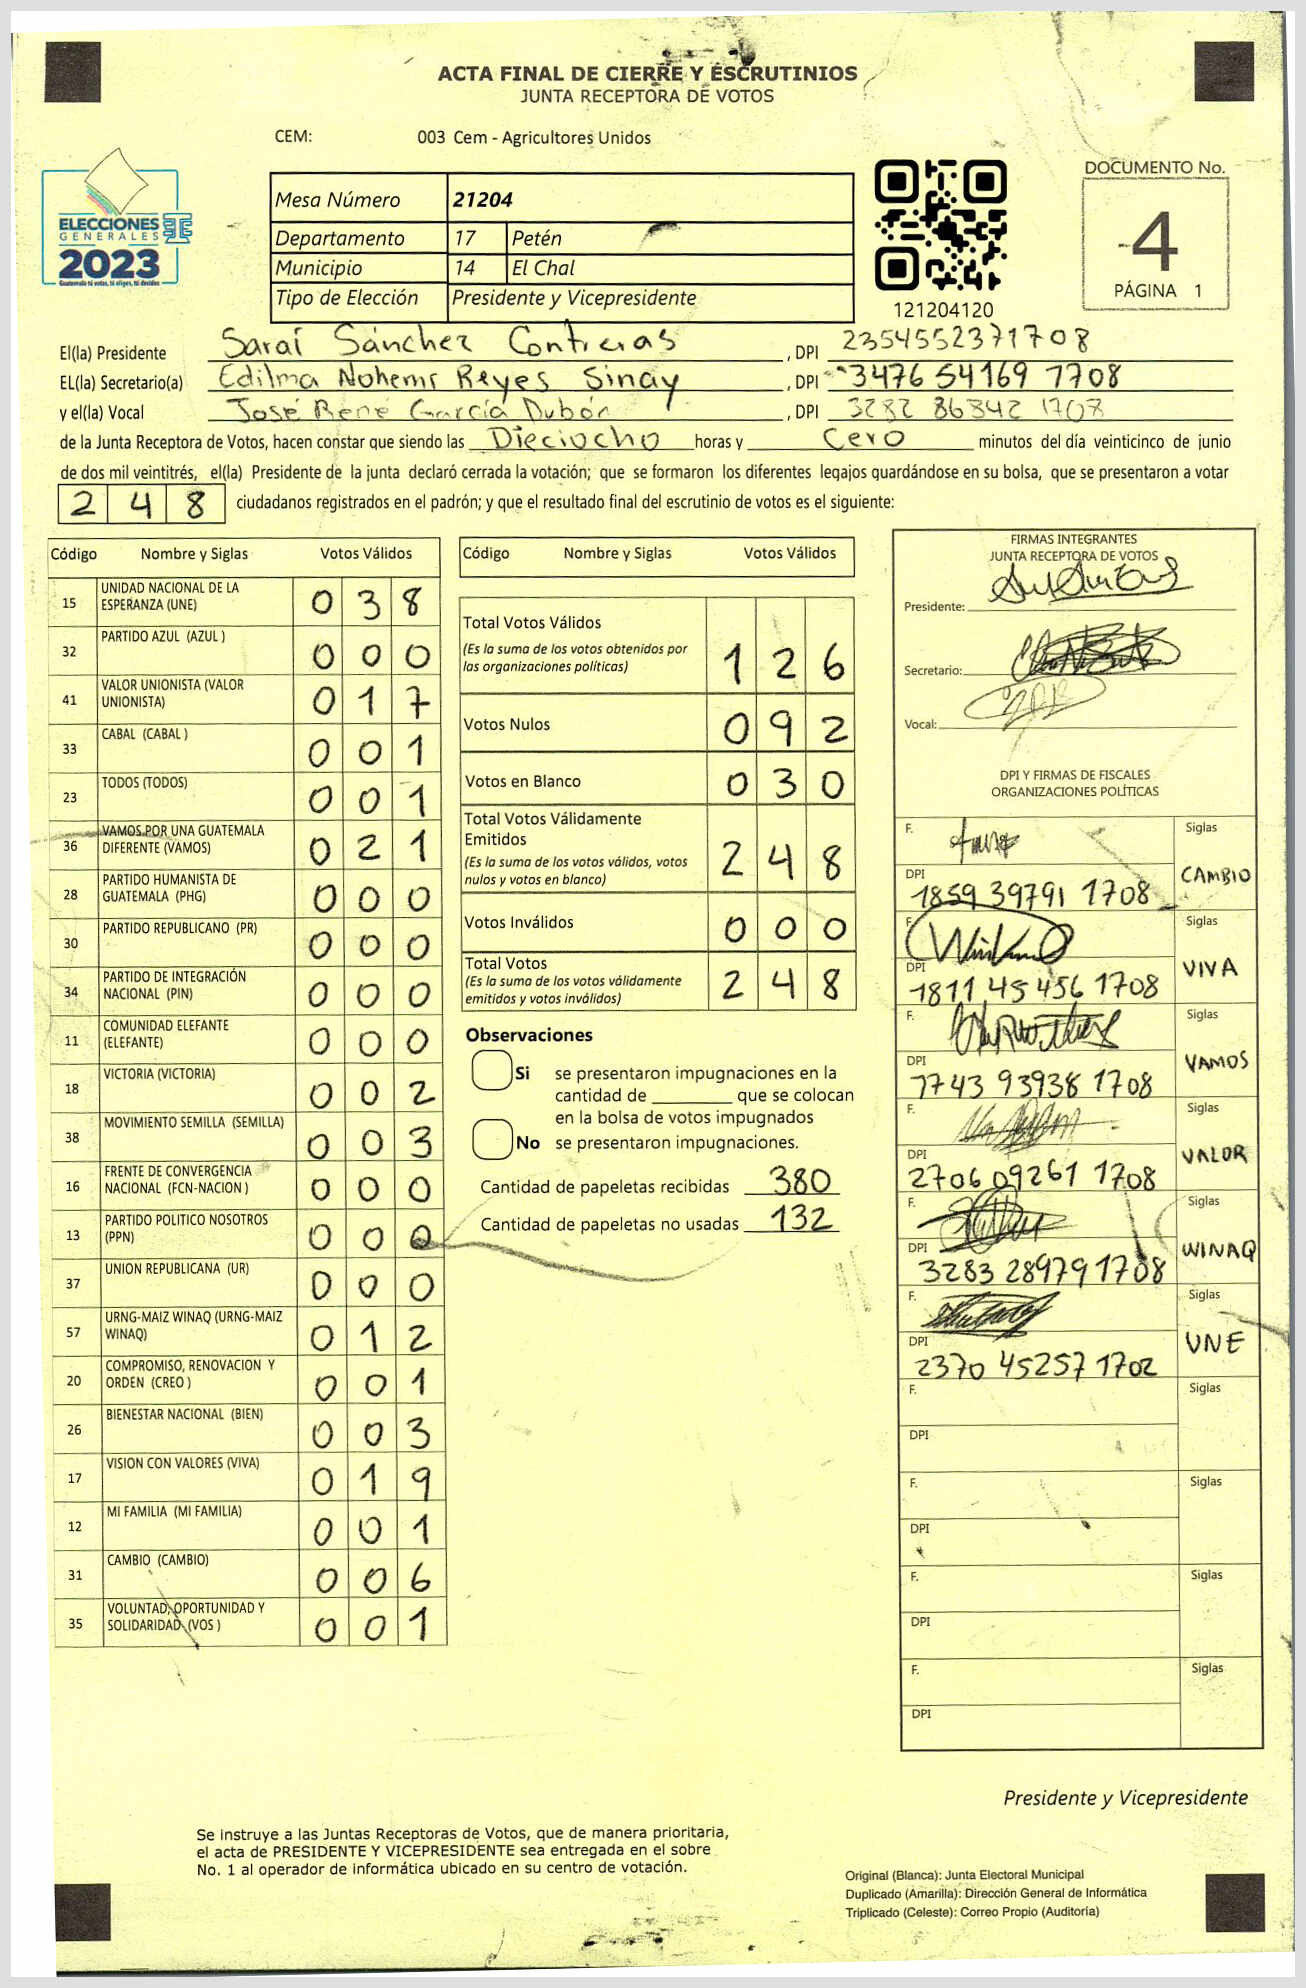 ACTA FINAL DE CIERRE Y ESCRUTINIOS
JUNTA RECEPTORA DE VOTOS
CEM: 003 Cem - Agricultores Unidos
ELECCIONES
GENERALES
2023
Guatemala tú votas, tú eliges, tú decides
Mesa Número 21204
Departamento 17 Petén
Municipio 14 El Chal
Tipo de Elección Presidente y Vicepresidente
121204120
DOCUMENTO No.
4
PÁGINA 1
El(la) Presidente Saraí Sánchez Contreras , DPI 2354552371708
EL(la) Secretario(a) Edilma Nohemí Reyes Sinay , DPI 3476 54169 1708
y el(la) Vocal José René García Dubón , DPI 3282 86842 1708
de la Junta Receptora de Votos, hacen constar que siendo las Dieciocho horas y Cero minutos del día veinticinco de junio
de dos mil veintitrés, el(la) Presidente de la junta declaró cerrada la votación; que se formaron los diferentes legajos quardándose en su bolsa, que se presentaron a votar
248 ciudadanos registrados en el padrón; y que el resultado final del escrutinio de votos es el siguiente:
Código Nombre y Siglas Votos Válidos
15 UNIDAD NACIONAL DE LA ESPERANZA (UNE) 038
32 PARTIDO AZUL (AZUL ) 000
41 VALOR UNIONISTA (VALOR UNIONISTA) 017
33 CABAL (CABAL ) 001
23 TODOS (TODOS) 001
36 VAMOS POR UNA GUATEMALA DIFERENTE (VAMOS) 021
28 PARTIDO HUMANISTA DE GUATEMALA (PHG) 000
30 PARTIDO REPUBLICANO (PR) 000
34 PARTIDO DE INTEGRACIÓN NACIONAL (PIN) 000
11 COMUNIDAD ELEFANTE (ELEFANTE) 000
18 VICTORIA (VICTORIA) 002
38 MOVIMIENTO SEMILLA (SEMILLA) 003
16 FRENTE DE CONVERGENCIA NACIONAL (FCN-NACION ) 000
13 PARTIDO POLITICO NOSOTROS (PPN) 000
37 UNION REPUBLICANA (UR) 000
57 URNG-MAIZ WINAQ (URNG-MAIZ WINAQ) 012
20 COMPROMISO, RENOVACION Y ORDEN (CREO ) 001
26 BIENESTAR NACIONAL (BIEN) 003
17 VISION CON VALORES (VIVA) 019
12 MI FAMILIA (MI FAMILIA) 001
31 CAMBIO (CAMBIO) 006
35 VOLUNTAD, OPORTUNIDAD Y SOLIDARIDAD (VOS ) 001
Código Nombre y Siglas Votos Válidos
Total Votos Válidos 126
(Es la suma de los votos obtenidos por
las organizaciones políticas)
Votos Nulos 092
Votos en Blanco 030
Total Votos Válidamente
Emitidos 248
(Es la suma de los votos válidos, votos
nulos y votos en blanco)
Votos Inválidos 000
Total Votos 248
(Es la suma de los votos válidamente
emitidos y votos inválidos)
Observaciones
Si se presentaron impugnaciones en la
cantidad de ________ que se colocan
en la bolsa de votos impugnados
No se presentaron impugnaciones.
Cantidad de papeletas recibidas 380
Cantidad de papeletas no usadas 132
FIRMAS INTEGRANTES
JUNTA RECEPTORA DE VOTOS
Presidente:
Secretario:
Vocal:
DPI Y FIRMAS DE FISCALES
ORGANIZACIONES POLÍTICAS
F. Siglas
DPI 1859 39791 1708 CAMBIO
F. Siglas
DPI 1811 45 456 1708 VIVA
F. Siglas
DPI 1743 93938 1708 VAMOS
F. Siglas
DPI 2706 09261 1708 VALOR
F. Siglas
DPI 3283 28979 1708 WINAQ
F. Siglas
DPI 2370 45257 1702 UNE
F. Siglas
DPI
F. Siglas
DPI
F. Siglas
DPI
F. Siglas
DPI
Presidente y Vicepresidente
Se instruye a las Juntas Receptoras de Votos, que de manera prioritaria,
el acta de PRESIDENTE Y VICEPRESIDENTE sea entregada en el sobre
No. 1 al operador de informática ubicado en su centro de votación.
Original (Blanca): Junta Electoral Municipal
Duplicado (Amarilla): Dirección General de Informática
Triplicado (Celeste): Correo Propio (Auditoría)